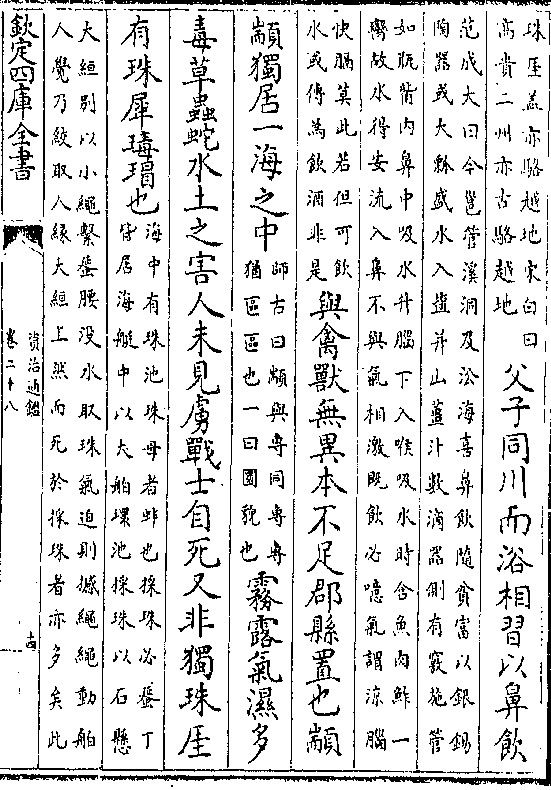 珠厓蓋亦駱越地宋白曰
高貴二州亦古駱越地
父子同川而浴相習以鼻飲
范成大曰今邕管溪洞及沿海喜鼻飲隨貧富以銀錫
陶器或大瓢盛水入鹽并山薑汁數滴器側有竅施管
如瓶觜内鼻中吸水升腦下入喉吸水時含魚肉鮓一
臠故水得安流入鼻不與氣相激既飲必噫氣謂涼腦
快膈莫此若但可飲
水或傳為飲酒非是
與禽獸無異本不足郡縣置也顓
顓獨居一海之中
師古曰顓與專同專專
猶區區也一曰圜貌也
霧露氣濕多
毒草蟲蛇水土之害人未見虜戰士自死又非獨珠厓
有珠犀瑇瑁也
海中有珠池珠母者蚌也採珠必蜑丁
皆居海艇中以大舶環池採珠以石懸
大絙别以小繩繫蜑腰没水取珠氣迫則撼繩繩動舶
人覺乃絞取人緣大絙上然而死於採珠者亦多矣此
欽定四庫全書
資治通鑑
卷二十八
十四